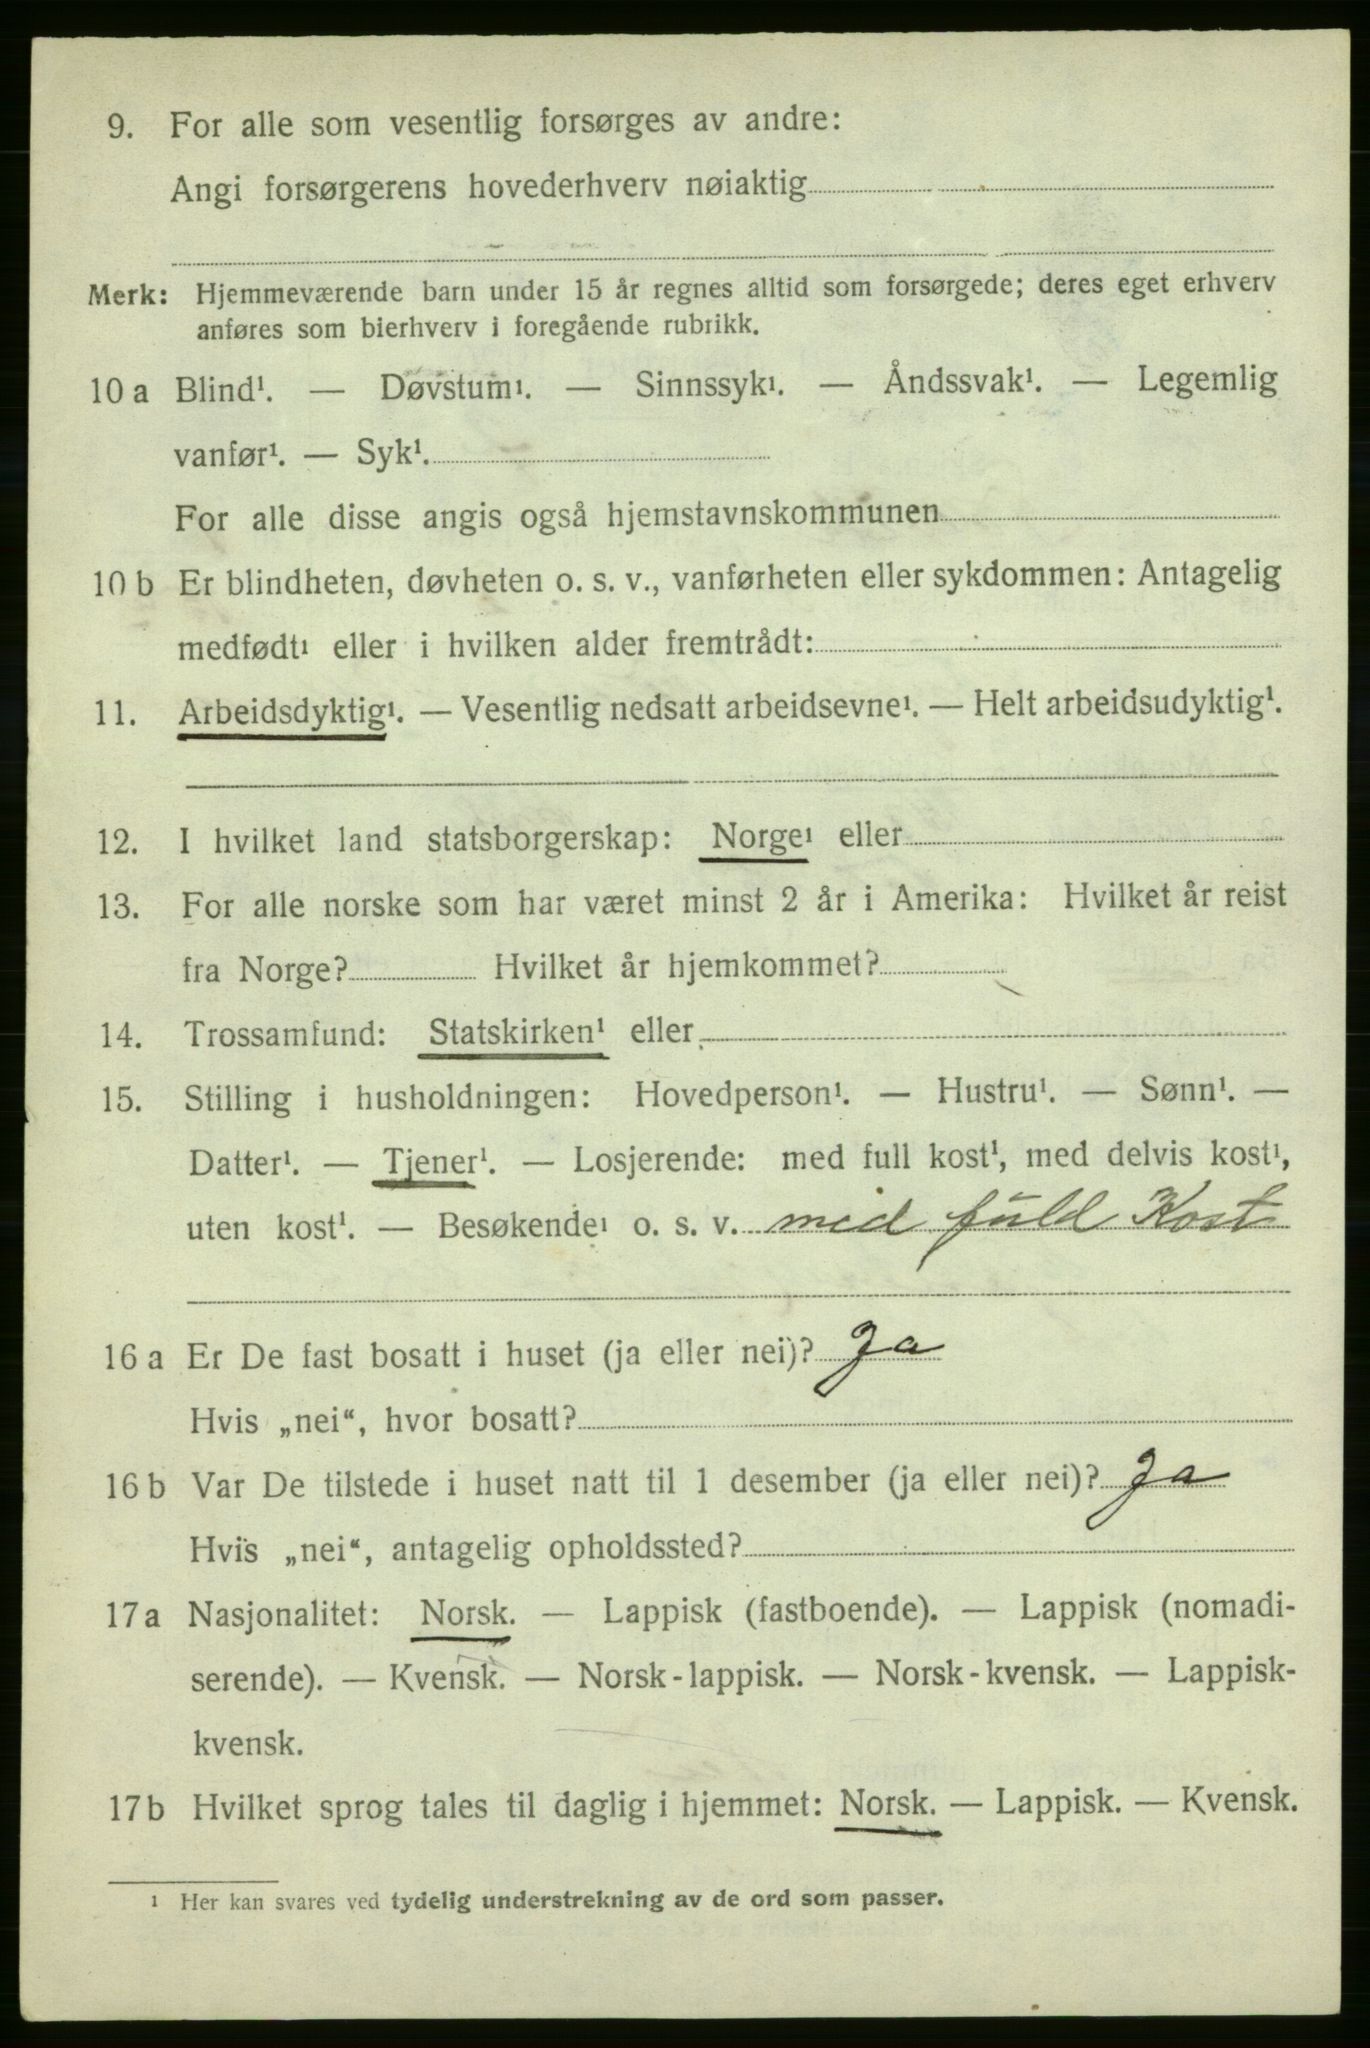 9. For alle som vesentlig forsørges av andre:
Angi forsørgerens hovederhverv nøiaktig
Merk: Hjemmeværende barn under 15 år regnes alltid som forsørgede; deres eget erhverv
anføres som bierhverv i foregående rubrikk.
10 a Blind¹. — Døvstum¹. — Sinnssyk¹. — Åndssvak¹. — Legemlig
vanfør¹. — Syk¹.
For alle disse angis også hjemstavnskommunen
10 b Er blindheten, døvheten o. s. v., vanførheten eller sykdommen: Antagelig
medfødt¹ eller i hvilken alder fremtrådt:
11. Arbeidsdyktig¹. — Vesentlig nedsatt arbeidsevne¹. — Helt arbeidsudyktig¹.
12. I hvilket land statsborgerskap: Norge¹ eller
13. For alle norske som har været minst 2 år i Amerika: Hvilket år reist
fra Norge? Hvilket år hjemkommet?
14. Trossamfund: Statskirken¹ eller
15. Stilling i husholdningen: Hovedperson¹. — Hustru¹. — Sønn¹. —
Datter¹. — Tjener¹. — Losjerende: med full kost¹, med delvis kost¹,
uten kost¹. — Besøkende¹ o. s. v. med fuld Kost
16 a Er De fast bosatt i huset (ja eller nei)? Ja
Hvis „nei“, hvor bosatt?
16 b Var De tilstede i huset natt til 1 desember (ja eller nei)? Ja
Hvis „nei“, antagelig opholdssted?
17 a Nasjonalitet: Norsk. — Lappisk (fastboende). — Lappisk (nomadi-
serende). — Kvensk. — Norsk-lappisk. — Norsk-kvensk. — Lappisk-
kvensk.
17 b Hvilket sprog tales til daglig i hjemmet: Norsk. — Lappisk. — Kvensk.
¹ Her kan svares ved tydelig understrekning av de ord som passer.